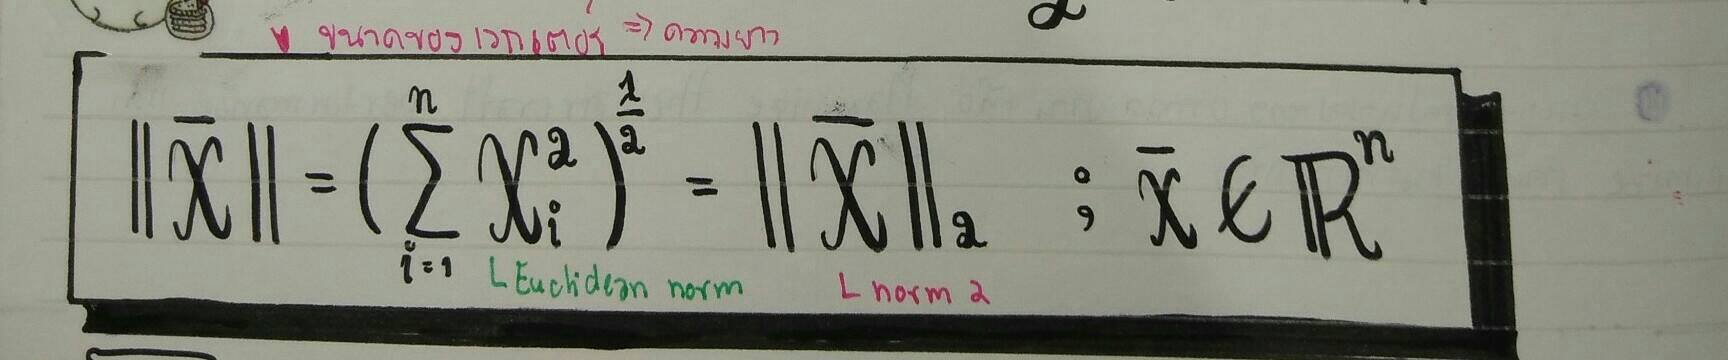 ขนาดของเวกเตอร์ => ความยาว
‖x̄‖ = (∑ᵢ₌₁ⁿ xᵢ²)^(1/2) = ‖x̄‖₂ ; x̄ ∈ ℝⁿ
Euclidean norm norm 2